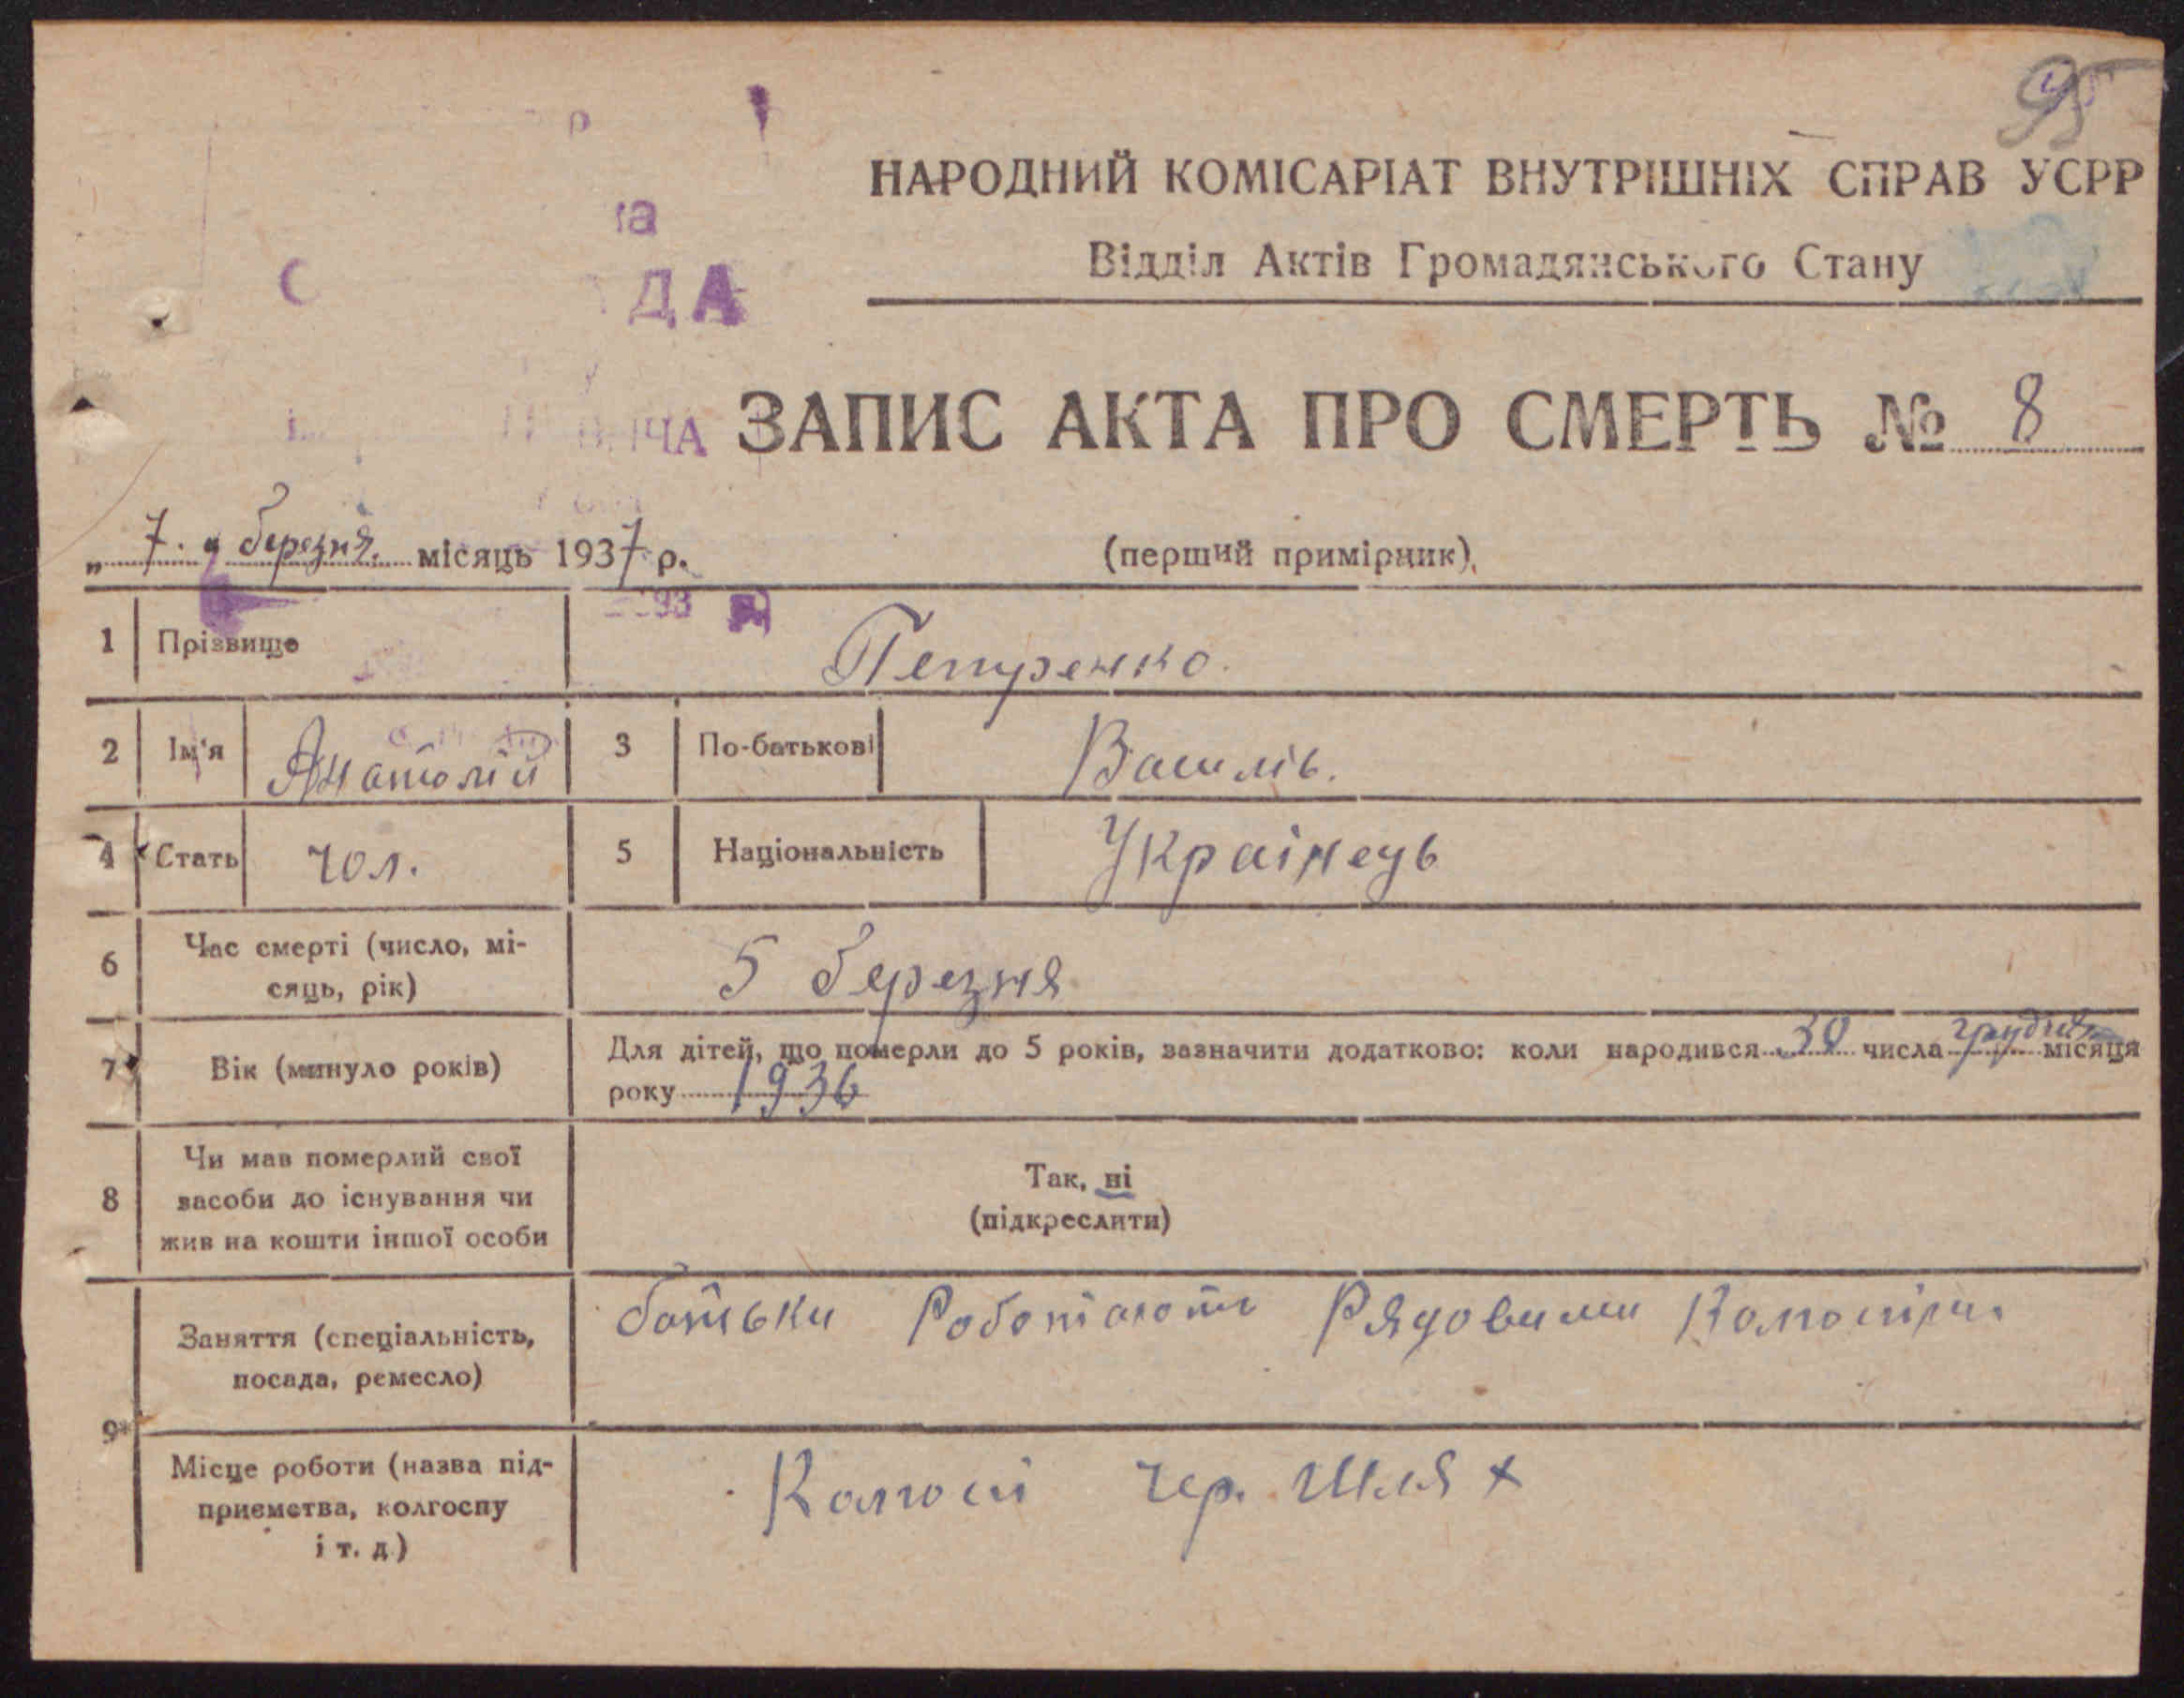 95
НАРОДНИЙ КОМІСАРІАТ ВНУТРІШНІХ СПРАВ УСРР
Відділ Актів Громадянського Стану
ДА
ЗАПИС АКТА ПРО СМЕРТЬ № 8
„ 7. " березня. місяць 1937 р.
(перший примірник).
1 Прізвище Петренко.
2 Ім'я Анатолій 3 По-батькові Василів.
4 Стать чол. 5 Національність Українець
6 Час смерті (число, мі-
сяць, рік) 5 березня
7 Вік (минуло років) Для дітей, що померли до 5 років, зазначити додатково: коли народився 30 числа грудня місяця
року 1936
8 Чи мав померлий свої
засоби до існування чи
жив на кошти іншої особи
Так, ні
(підкреслити)
9* Заняття (спеціальність,
посада, ремесло)
батьки Работают Рядовими
Місце роботи (назва під-
приємства, колгоспу
і т. д.)
чер. Шлях